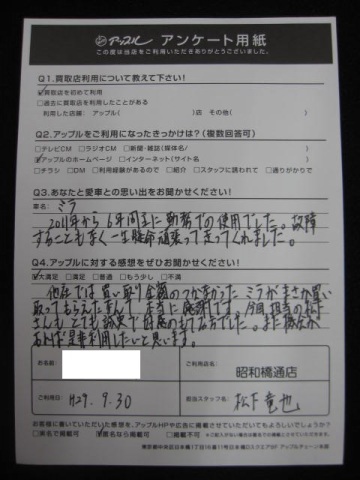 アップル アンケート用紙
この度は当店をご利用いただきありがとうございました。
Q1.買取店利用について教えて下さい!
☑買取店を初めて利用
□過去に買取店を利用したことがある
利用した店舗: アップル( )店 その他( )
Q2.アップルをご利用になったきっかけは?(複数回答可)
□テレビCM □ラジオCM □新聞・雑誌(媒体名/ )
☑アップルのホームページ □インターネット(サイト名 )
□チラシ □DM □利用経験があるので □紹介 □スタッフに誘われて □通りがかりで
Q3.あなたと愛車との思い出をお聞かせください!
車名: ミラ
2011年から6年間主に勤務での使用でした。故障
することもなく一生懸命頑張って走ってくれました。
Q4.アップルに対する感想をぜひお聞かせください!
☑大満足 □満足 □普通 □もう少し □不満
他店では買い取り金額のつかなかったミラがまさか買い
取ってもらえたなんて本当に感謝です。今回、担当の松下
さんもとても誠実で好感のもてる方でした。また機会が
あれば是非利用したいと思います。
お名前
ご利用店名
昭和橋通店
ご利用日 H29. 9. 30
担当スタッフ名 松下 竜也
お客様に書いていただいた感想を、アップルHPや広告に掲載させていただいてもよろしいでしょうか?
□実名で掲載可 ☑匿名なら掲載可 □掲載不可